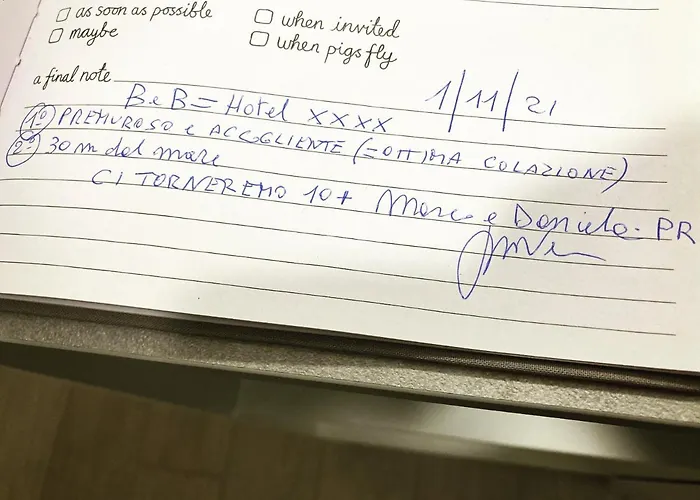 as soon as possible
maybe
when invited
when pigs fly
a final note
BeB = Hotel XXXX 1/11/21
1º PREMUROSO e ACCOGLIENTE (=OTTIMA COLAZIONE)
2º 30 m dal mare
CI TORNEREMO 10+ Marco e Daniela - PR